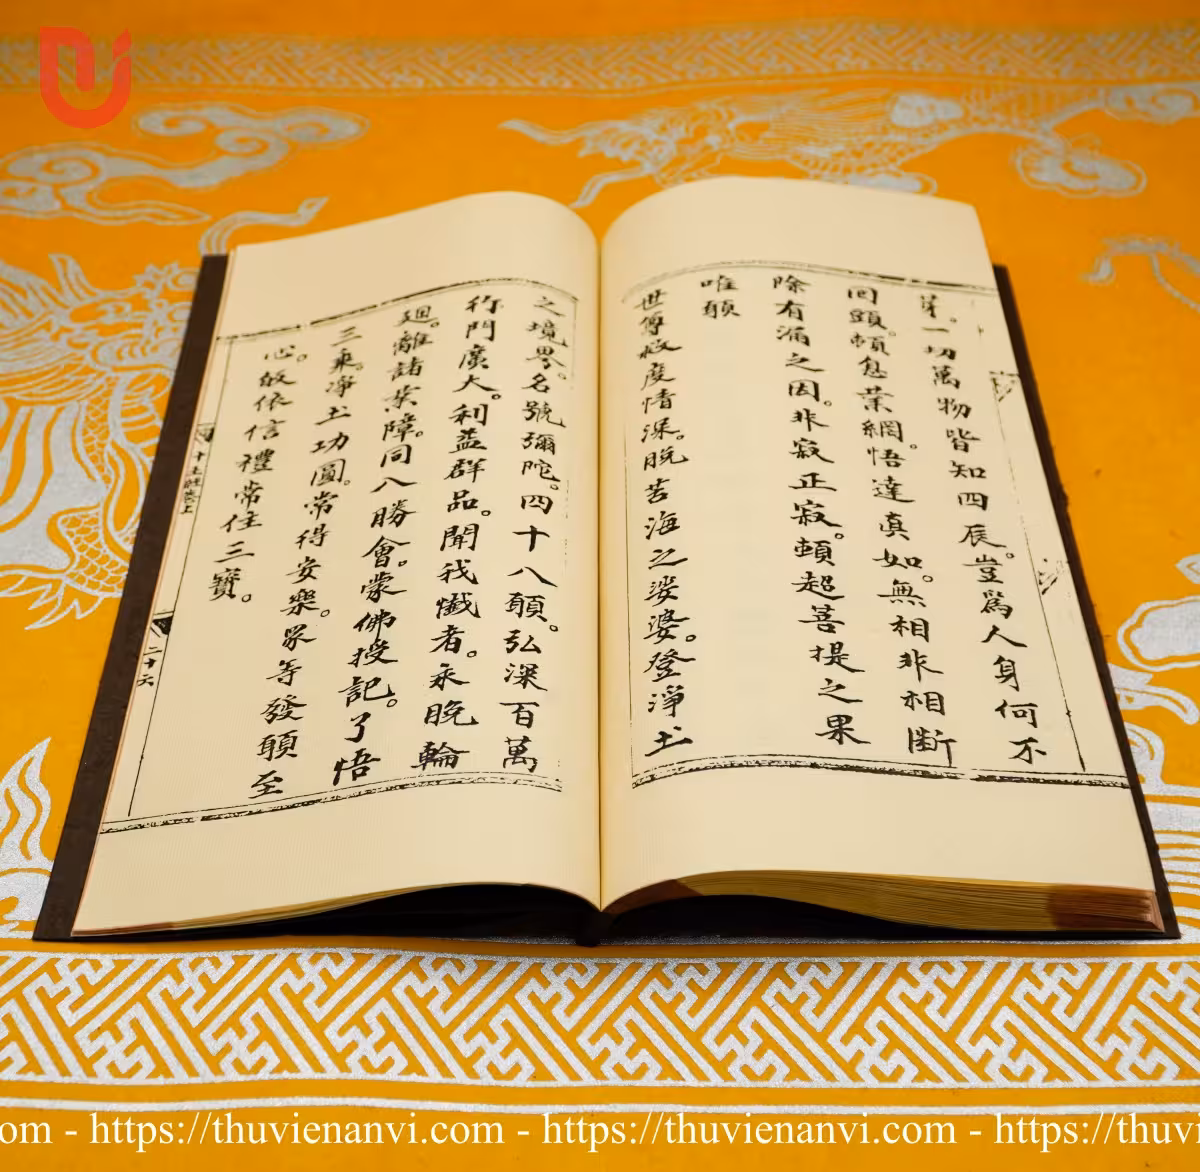 第。一切萬物皆知四辰。豈爲人身何不
回頭。頼息業網。悟達真如。無相非相斷
除有漏之因。非寂正寂。頼超菩提之果
唯願
世尊救度情深。脫苦海之娑婆。登淨土
之境界。名號彌陀。四十八願。弘深百萬
称門廣大。利益群品。聞我懺者。永脫輪
廻。離諸業障。同八勝會。蒙佛授記。了悟
三乘。净土功圓。常得安樂。眾等發願至
心皈依信禮常住三寶。
二十六
om - https://thuvienanvi.com - https://thuvienanvi.com - https://thuvi